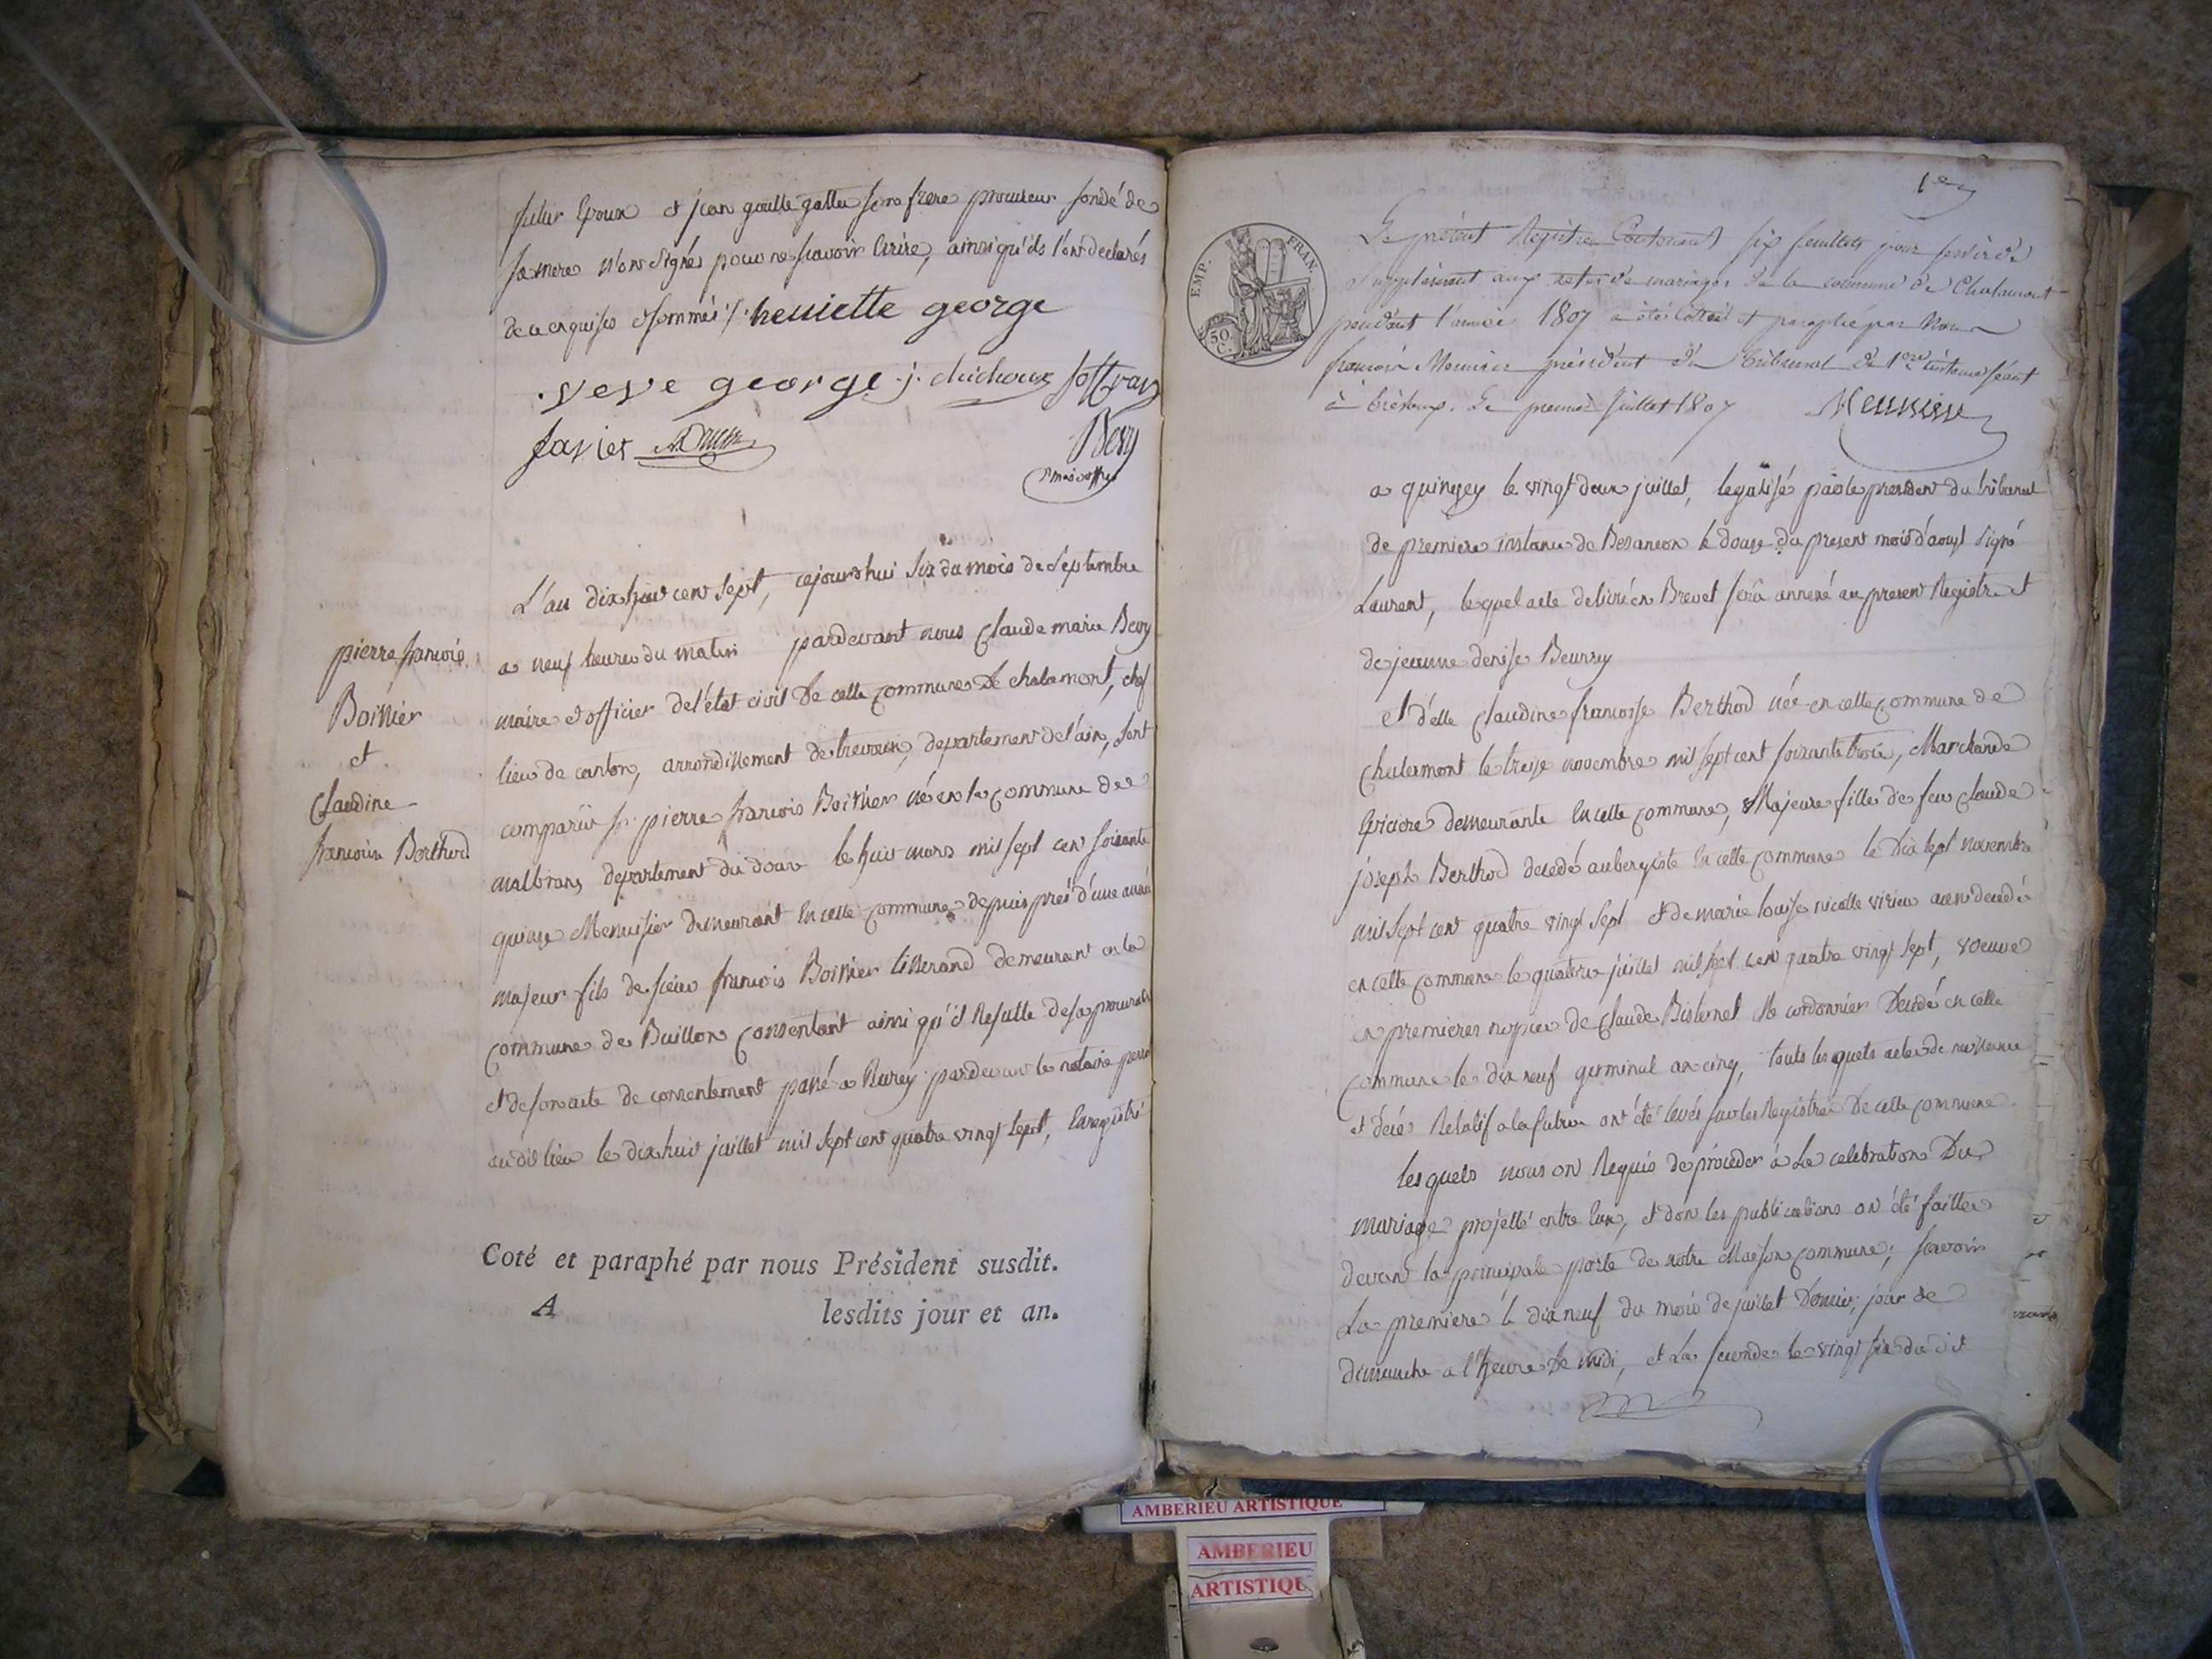 futur Epoux et jean goutte gatte son frere procureur fondé de
sa mere n'ont signés pour ne scavoir Ecrire, ainsi qu'ils l'ont declarés
de ce enquis et sommés /. henriette george
veve george j. chichoux
Javier
Bevy
L'an dix huit cent sept, cejourd'hui six du mois de Septembre
a neuf heures du matin pardevant nous Claude marie Bevy
maire et officier de l'état civil de cette commune de chalamont, chef
lieu de canton, arrondissement de trevoux, departement de l'ain, sont
comparus sr. pierre francois Boithier né en la commune de
malbrans departement du doux le huit mars mil sept cent soixante
quinze Menuisier demeurant En cette commune depuis prés d'une année
majeur fils de sieur francois Boithier tisserand demeurant en la
commune de Buillon consentant ainsi qu'il Resulte de sa procuration
et de son acte de consentement passé a Rurey pardevant le notaire
audit lieu le dix huit juillet mil sept cent quatre vingt sept, Enregistré
pierre francois
Boithier
et
Claudine
francoise Berthod
Coté et paraphé par nous Président susdit.
A lesdits jour et an.
1er
EMP. FRAN.
50. C.
Le présent Registre Contenant six feuillets pour servir de
Supplément aux actes de mariages de la commune de Chalamont
pendant l'année 1807 a été Cotté et paraphé par Nous
françois Meunier président du Tribunal de 1ere instance séant
à Trévoux. Le premier Juillet 1807 Meunier
a quingey le vingt deux juillet, legalisé par le president du tribunal
de premiere instance de Besancon le douze du present mois d'aoust Signé
Laurent, lequel acte delivré en Brevet sera annexé au present Registre et
de jeanne denise Beurey
et d'elle Claudine francoise Berthod née en cette commune de
Chalamont le treize novembre mil sept cent soixante trois, Marchande
Epiciere demeurante En cette commune, Majeure fille de feu Claude
joseph Berthod decedé aubergiste En cette commune le dix sept novembre
mil sept cent quatre vingt sept et de marie louise nicolle virieu aussi decedée
en cette commune le quatre juillet mil sept cent quatre vingt sept, veuve
en premieres nopces de Claude Bisternel Me cordonnier Decedé en cette
commune le dix neuf germinal an cinq, touts lesquels actes de naissance
et décés Relatif a la future ont été levés sur les Registres de cette commune
Lesquels nous on Requis de procéder à la celebration Du
mariage projetté entre Eux, et dont les publications on été faittes
devant la principale porte de notre Maison commune; scavoir
La premiere le dix neuf du mois de juillet Dernier, jour de
dimanche a l'heure de midi, et La seconde le vingt six du dit
AMBERIEU ARTISTIQUE
AMBERIEU
ARTISTIQUE